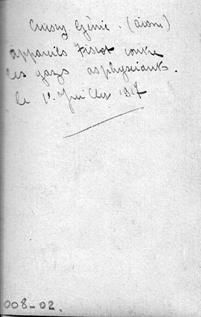 Génie. (Aisne)
appareils Tissot contre
les gazs asphyxiants.
le 1er Juillet 1917
008-02.